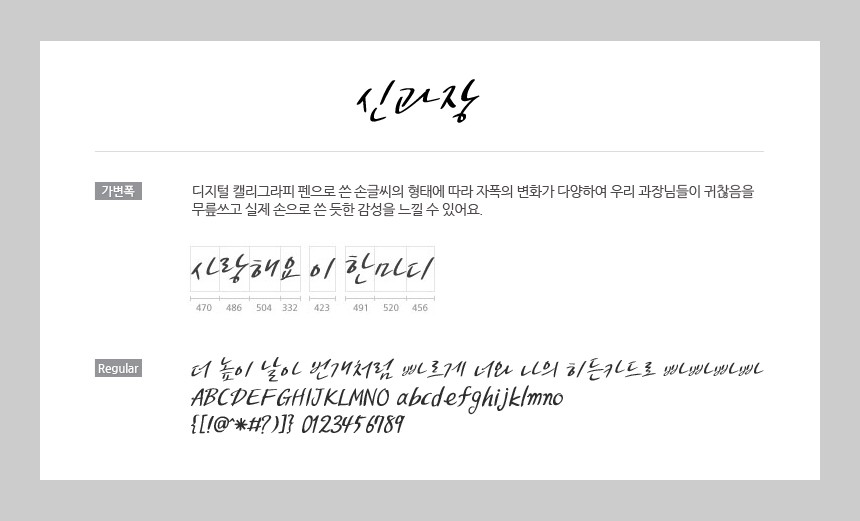 신과장
가변폭
디지털 캘리그라피 펜으로 쓴 손글씨의 형태에 따라 자폭의 변화가 다양하여 우리 과장님들이 귀찮음을
무릎쓰고 실제 손으로 쓴 듯한 감성을 느낄 수 있어요.
사랑해요 이 한마디
470 486 504 332 423 491 520 456
Regular
더 높이 날아 번개처럼 빠르게 너와 나의 히든카드로 빠빠빠빠
ABCDEFGHIJKLMNO abcdefghijklmno
{[!@^*#?)]} 0123456789